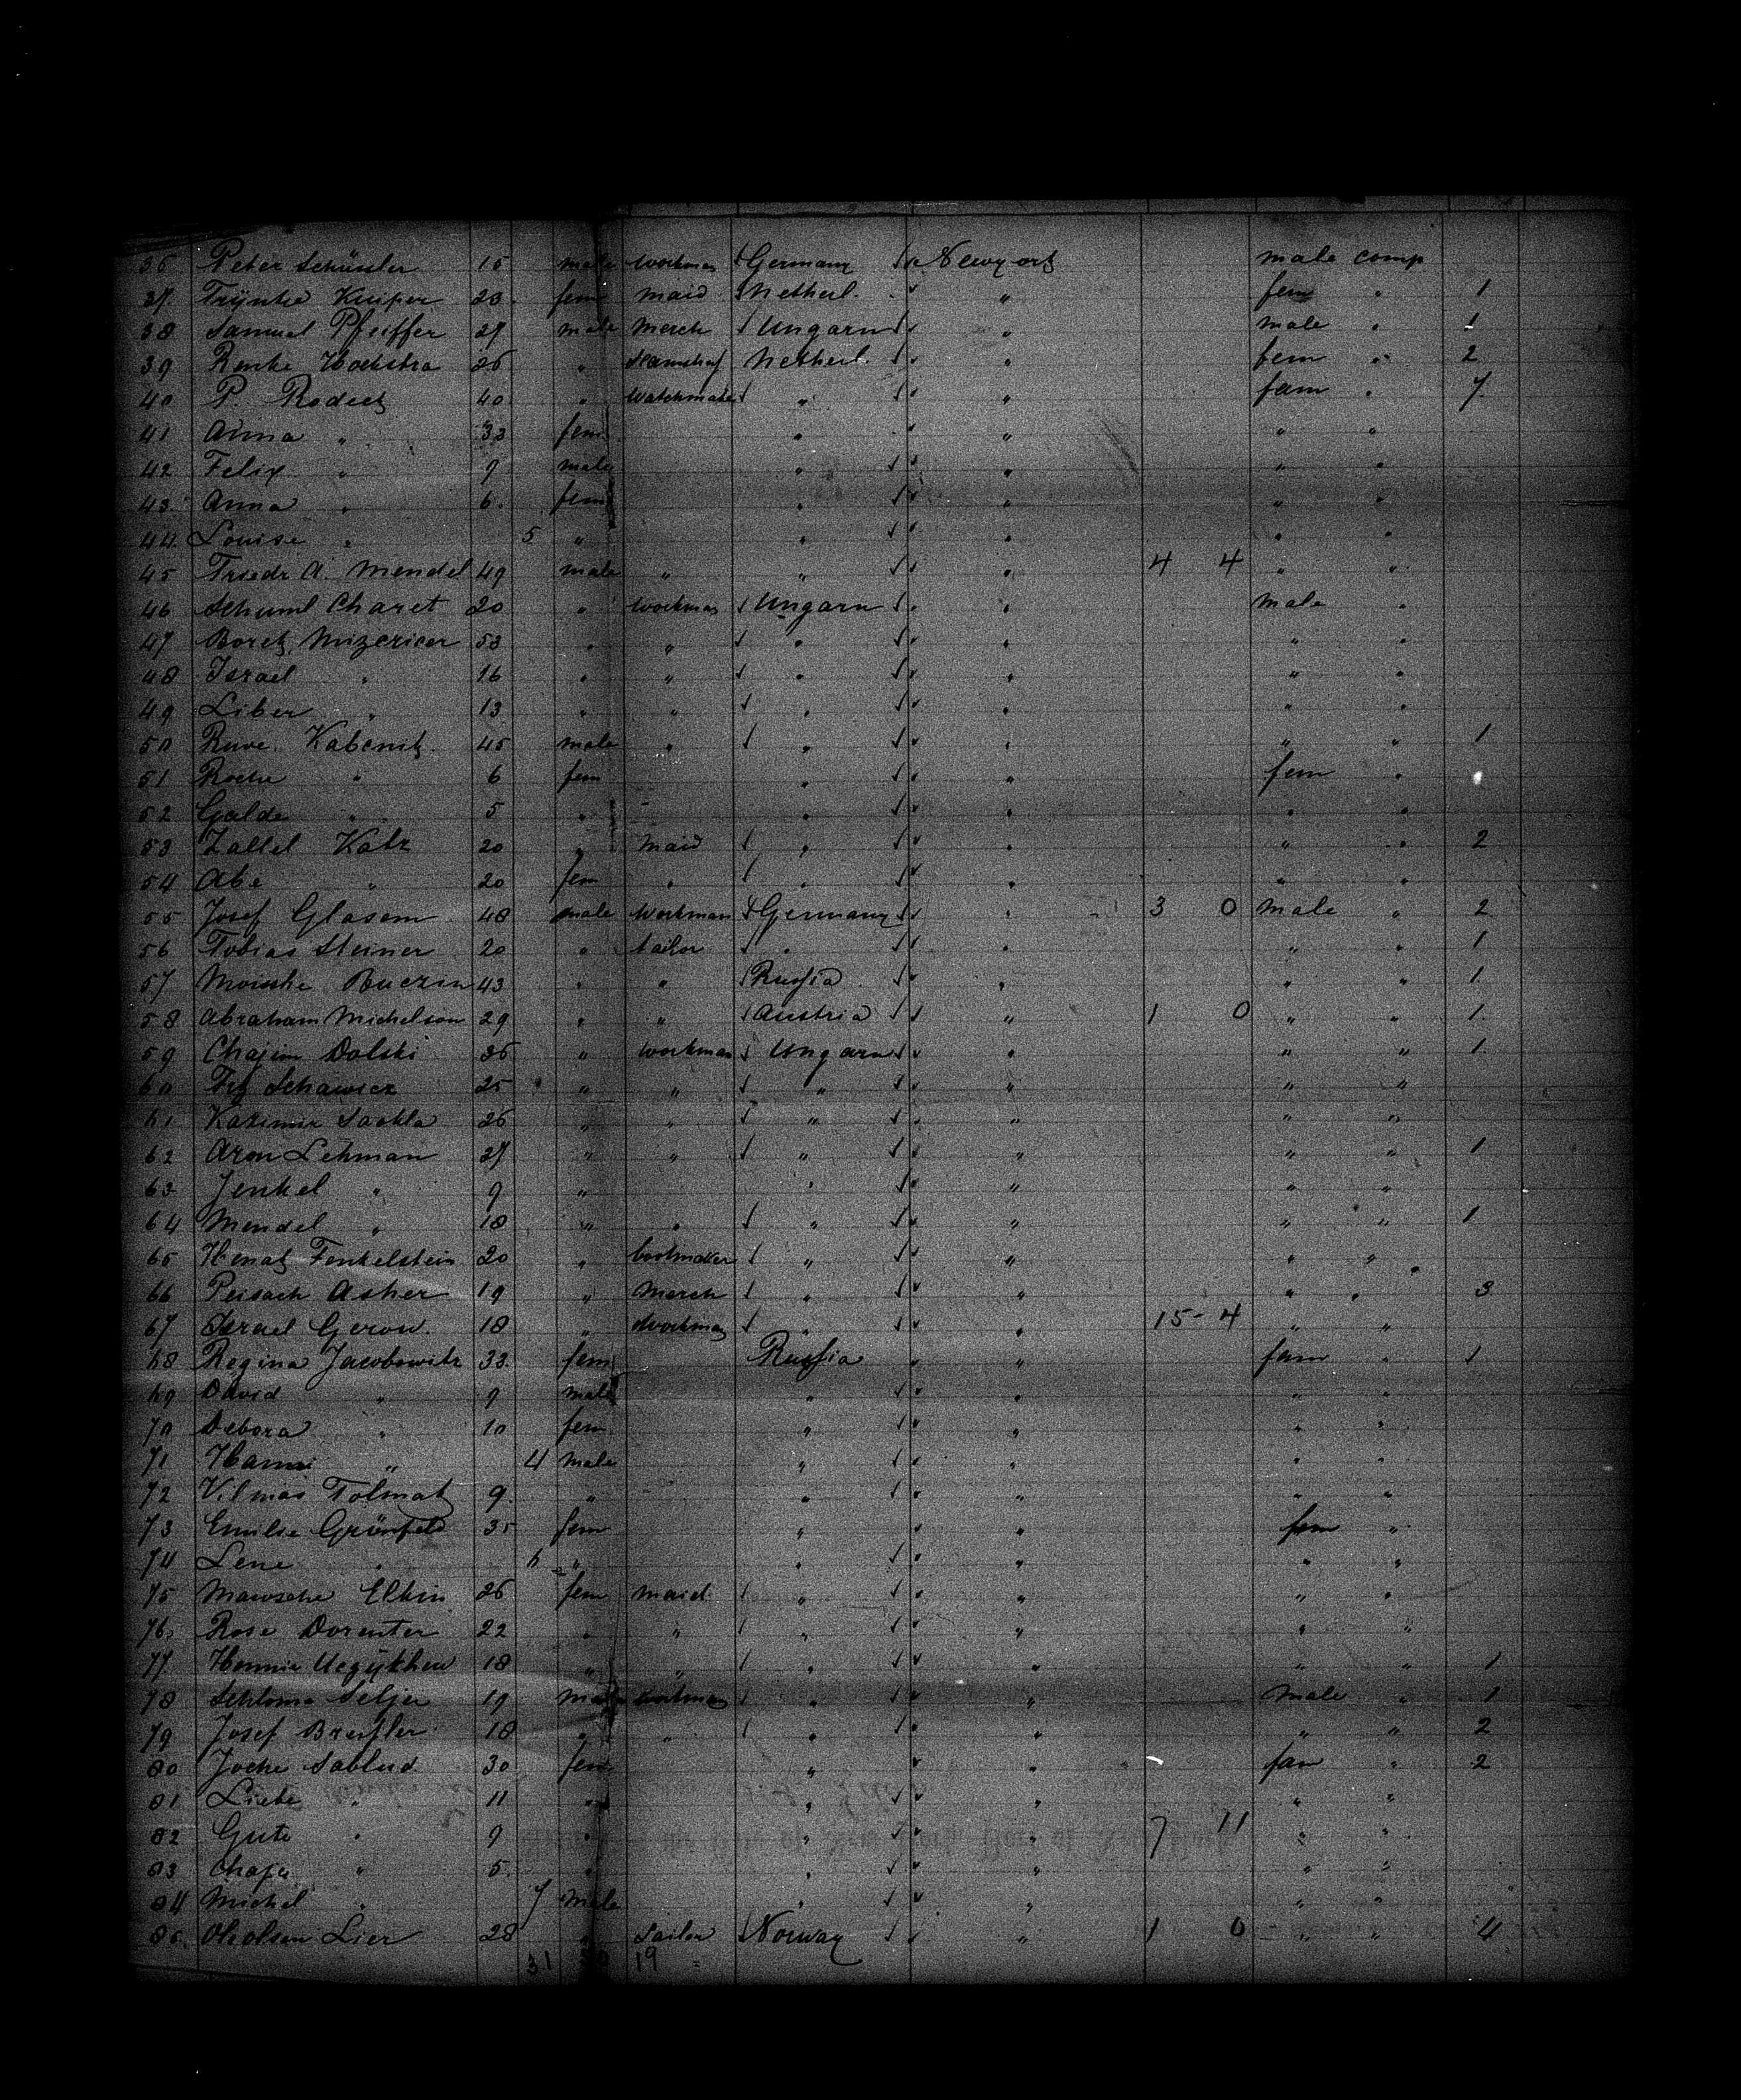 36 Peter Schüssler 15 male workman Germany Newyork male comp
37 Trijntie Kuiper 23 fem maid Netherl. " fem " 1
38 Samuel Pfeiffer 27 male merch Ungarn " male " 1
39 Renke Hoekstra 26 " Netherl. " fem " 2
40 P. Rodeck 40 " watchmake " " fam " 7
41 Anna " 33 fem " " " "
42 Felix " 9 male " " " "
43 Anna " 6 fem " " " "
44 Louise " 5 " " " " "
45 Friedr A. Mendel 49 male " " " 4 4 " "
46 Schuml Charet 20 " workman Ungarn " male "
47 Boretz Mizericer 53 " " " " " "
48 Israel " 16 " " " " " "
49 Liber " 13 " " " " " "
50 Ruve Kabenitz 45 male " " " " " 1
51 Roche " 6 fem " " fem "
52 Galde " 5 " " " " "
53 Zallel Katz 20 " maid " " " " 2
54 Abe " 20 fem " " " " "
55 Josef Glasem 48 male workman Germany " 3 0 male " 2
56 Tobias Steiner 20 " tailor " " " " 1
57 Moische Buczin 43 " " Russia " " " 1
58 Abraham Michelson 29 " " Austria " 1 0 " " 1
59 Chajim Dolski 36 " workman Ungarn " " " 1
60 Schawicz 25 " " " " " "
61 Kazimir Sackla 26 " " " " " "
62 Aron Lehman 27 " " " " " " 1
63 Jenkel " 9 " " " " "
64 Mendel " 18 " " " " " " 1
65 Henatz Fenkelstein 20 " bootmaker " " " "
66 Peisach Asher 19 " merch " " " " 3
67 Israel Gerow. 18 " workman " " 15 - 4 " "
68 Regina Jacobowitz 33 fem Russia " fam " 1
69 David " 9 male " " " "
70 Debora " 10 fem " " " "
71 " 4 male " " " "
72 Vilmas Tolnat 9 " " " " "
73 Emilie Grünfeld 35 fem " " fem "
74 Lene " 6 " " " " "
75 Mawsche Elkin 26 fem maid " " " "
76 Rose Dorenter 22 " " " " " "
77 Hennie 18 " " " " " " 1
78 Schloma Seljer 19 male workman " " male " 1
79 Josef Breifler 18 " " " " " " 2
80 Joche Sablud 30 fem " " fam " 2
81 Liebe " 11 " " " " "
82 Gute " 9 " " " 7 11 " "
83 Chaje " 5 " " " " "
84 Michel " 7 male " " " "
85 Olsen Lier 28 " sailor Norway " 1 0 " " 4
31 19